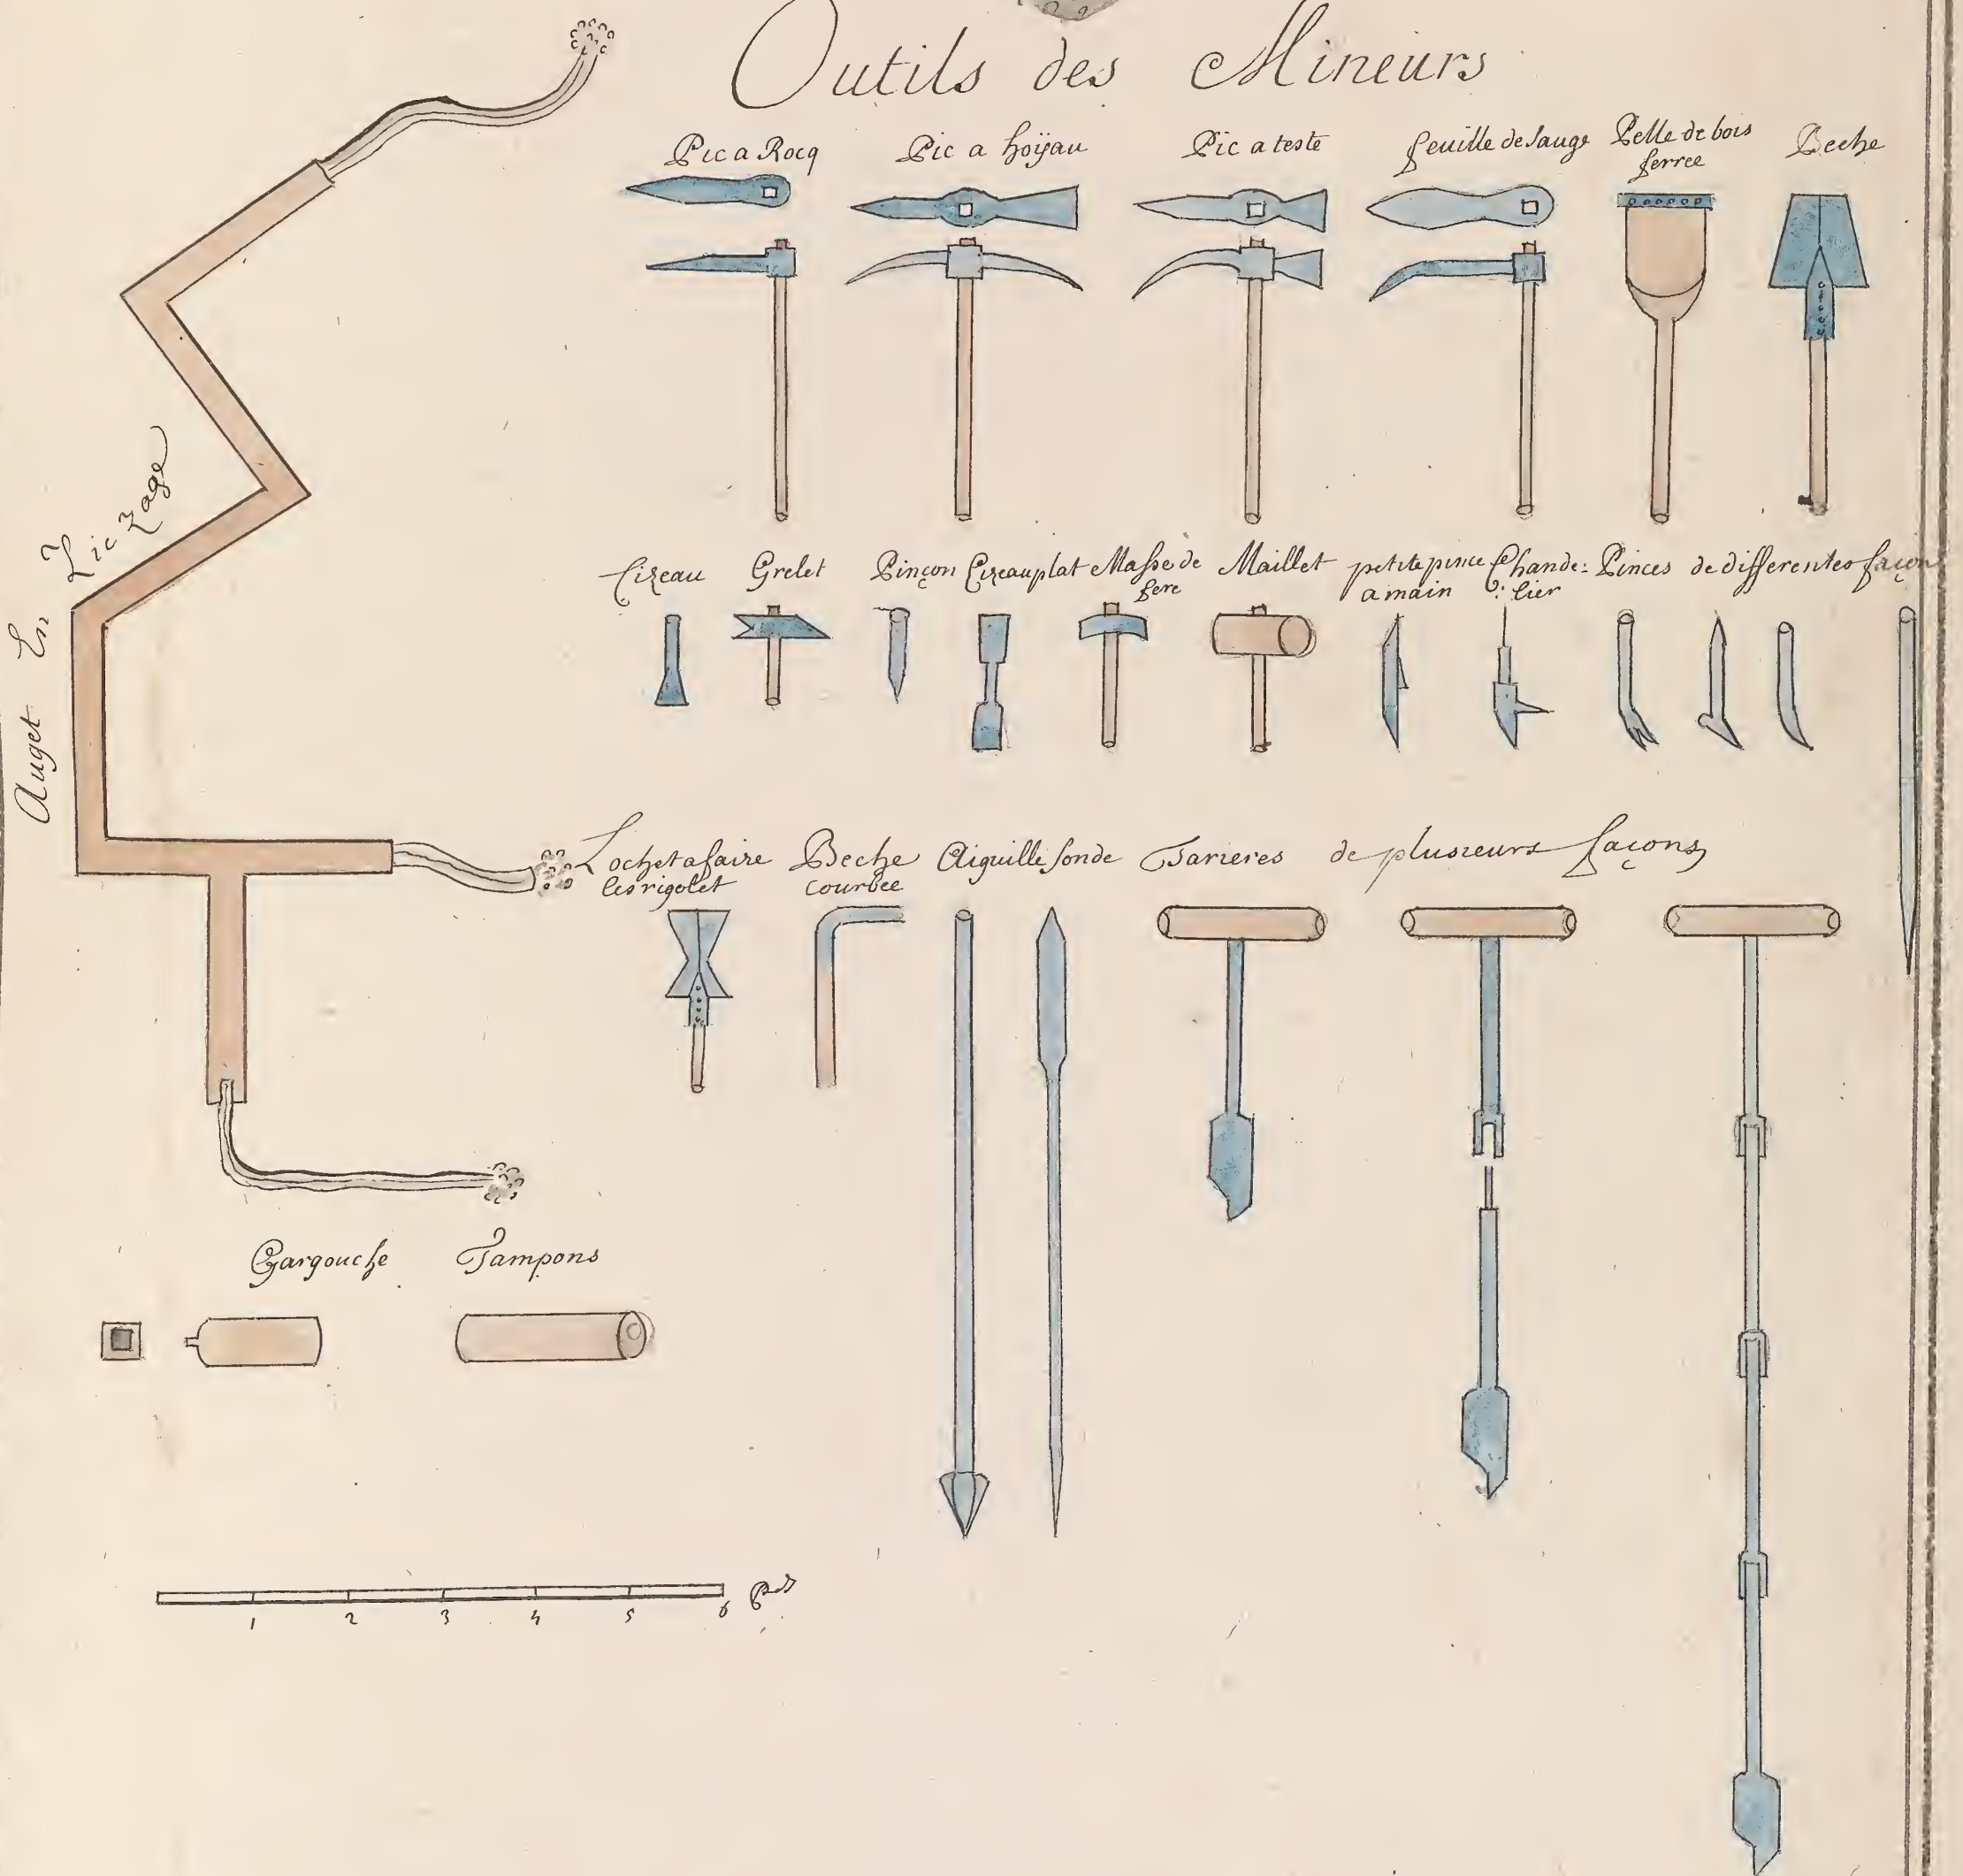 Outils des Mineurs
Pic a Rocq
Pic a hoÿau
Pic a teste
feuille de sauge
Pelle de bois
ferree
Beche
Cizeau
Grelet
Pinçon
Cizeau plat
Masse de
fere
Maillet
petite pince
a main
Chande:
lier
Pinces de differentes façon
Auget En Ziczage
Lochet a faire
les rigolet
Beche
courbee
Aiguille sonde
Tarieres de plusieurs façons
Gargouche
Tampons
1 2 3 4 5 6 Pds